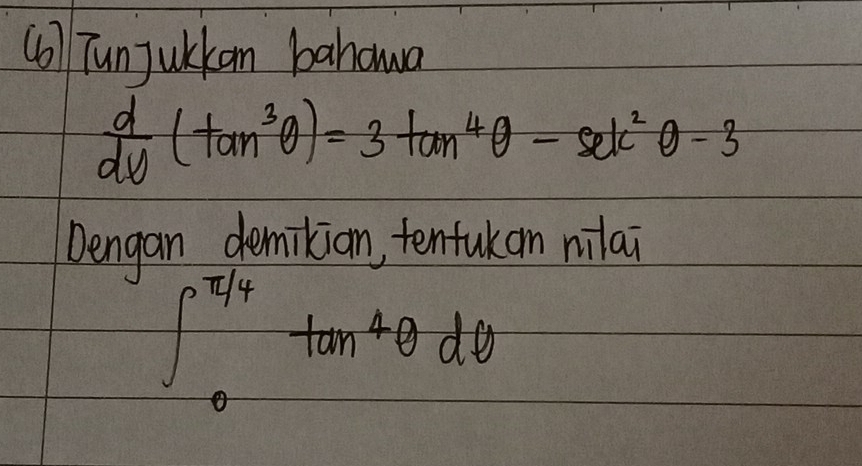 (b) Tunjukkan bahawa
d/dθ (tan³θ) = 3 tan⁴θ - sek² θ - 3
Dengan demikian, tentukan nilai
∫₀^π/4 tan⁴θ dθ